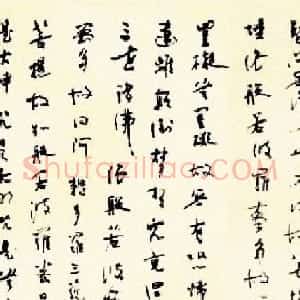 埵依般若波羅蜜多故
罣礙無罣礙故無有恐怖
遠離顛倒夢想究竟涅
三世諸佛依般若波
蜜多故得阿耨多羅三藐
菩提故知般若波羅蜜多
是大神咒是大明咒是
Shufaziliao.COM